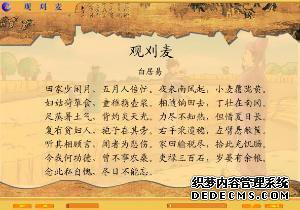 观刈麦
观刈麦
白居易
田家少闲月，五月人倍忙。夜来南风起，小麦覆陇黄。
妇姑荷箪食，童稚携壶浆。相随饷田去，丁壮在南冈。
足蒸暑土气，背灼炎天光。力尽不知热，但惜夏日长。
复有贫妇人，抱子在其旁。右手秉遗穗，左臂悬敝筐。
听其相顾言，闻者为悲伤。家田输税尽，拾此充饥肠。
今我何功德，曾不事农桑。吏禄三百石，岁晏有余粮。
念此私自愧，尽日不能忘。
织梦内容管理系统
DEDECMS.COM